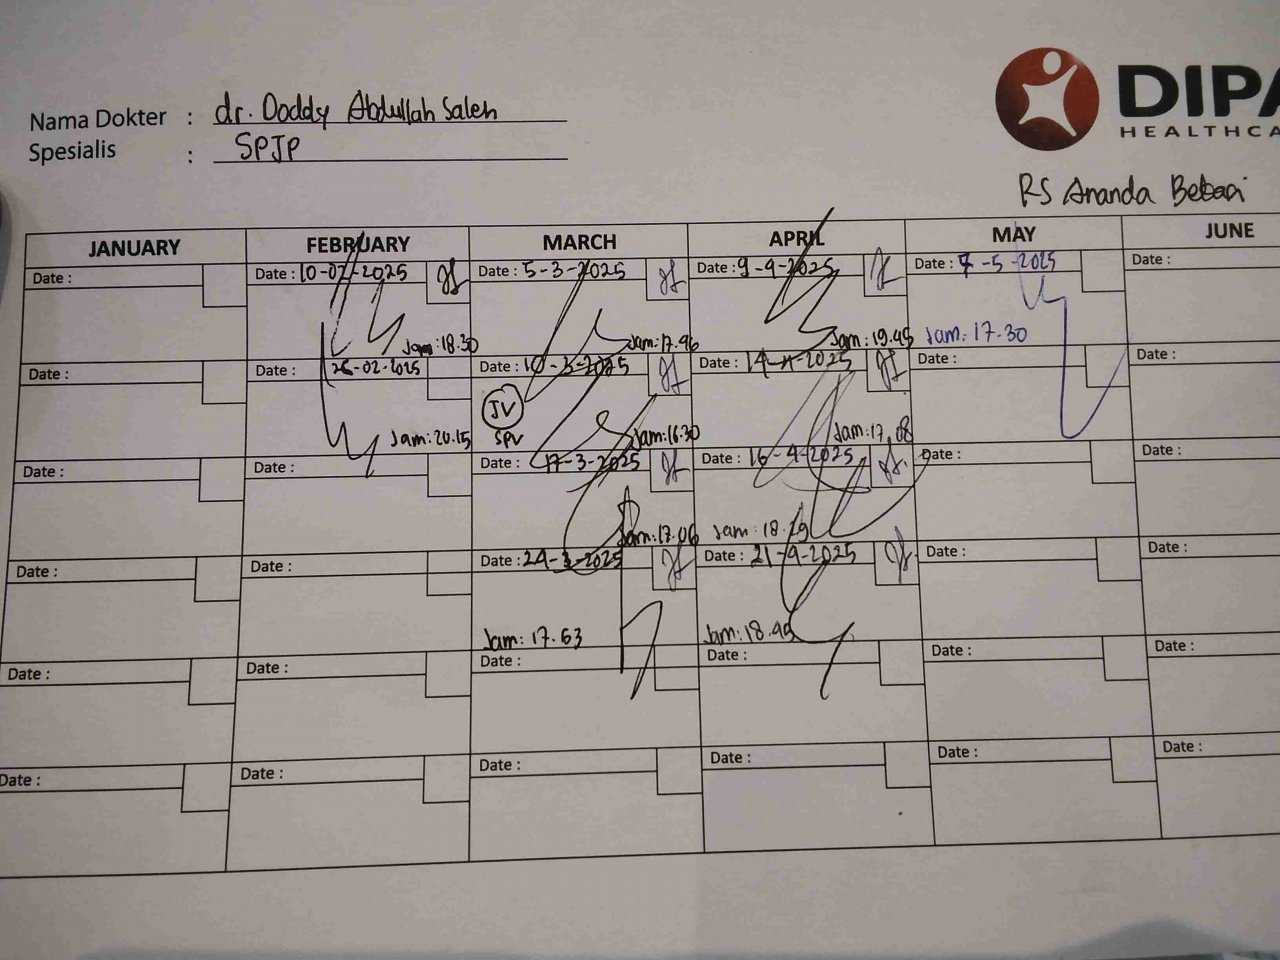 Nama Dokter : dr. Doddy Abdullah Saleh
Spesialis : SPJP
DIPA
HEALTHCA
RS Ananda Bekasi
JANUARY FEBRUARY MARCH APRIL MAY JUNE
Date : Date : 10-02-2025 Date : 5-3-2025 Date : 9-4-2025 Date : 7-5-2025 Date :
Jam: 18.30 Jam: 17.46 Jam: 19.45 Jam: 17.30
Date : Date : 26-02-2025 Date : 10-3-2025 Date : 14-4-2025 Date : Date :
JV
SPV
Jam: 20.15 Jam: 16.30 Jam: 17.08
Date : Date : Date : 17-3-2025 Date : 16-4-2025 Date : Date :
Jam: 17.06 Jam: 18.29
Date : Date : Date : 24-3-2025 Date : 21-4-2025 Date : Date :
Jam: 17.53 Jam: 18.45
Date : Date : Date : Date : Date : Date :
Date : Date : Date : Date : Date : Date :